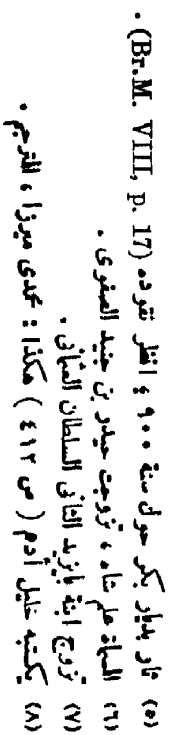 (٥) ثار بديار بكر حول سنة ٩٠٠ ؛ انظر نقوده (Br.M. VIII, p. 17) .
(٦) المسماة علم شاه ، تزوجت حيدر بن جنيد الصفوى .
(٧) تزوج ابنة بايزيد الثانى السلطان العثمانى .
(٨) يكتبه خليل أدهم ( ص ٤١٢ ) هكذا : محمدى ميرزا ، المترجم .